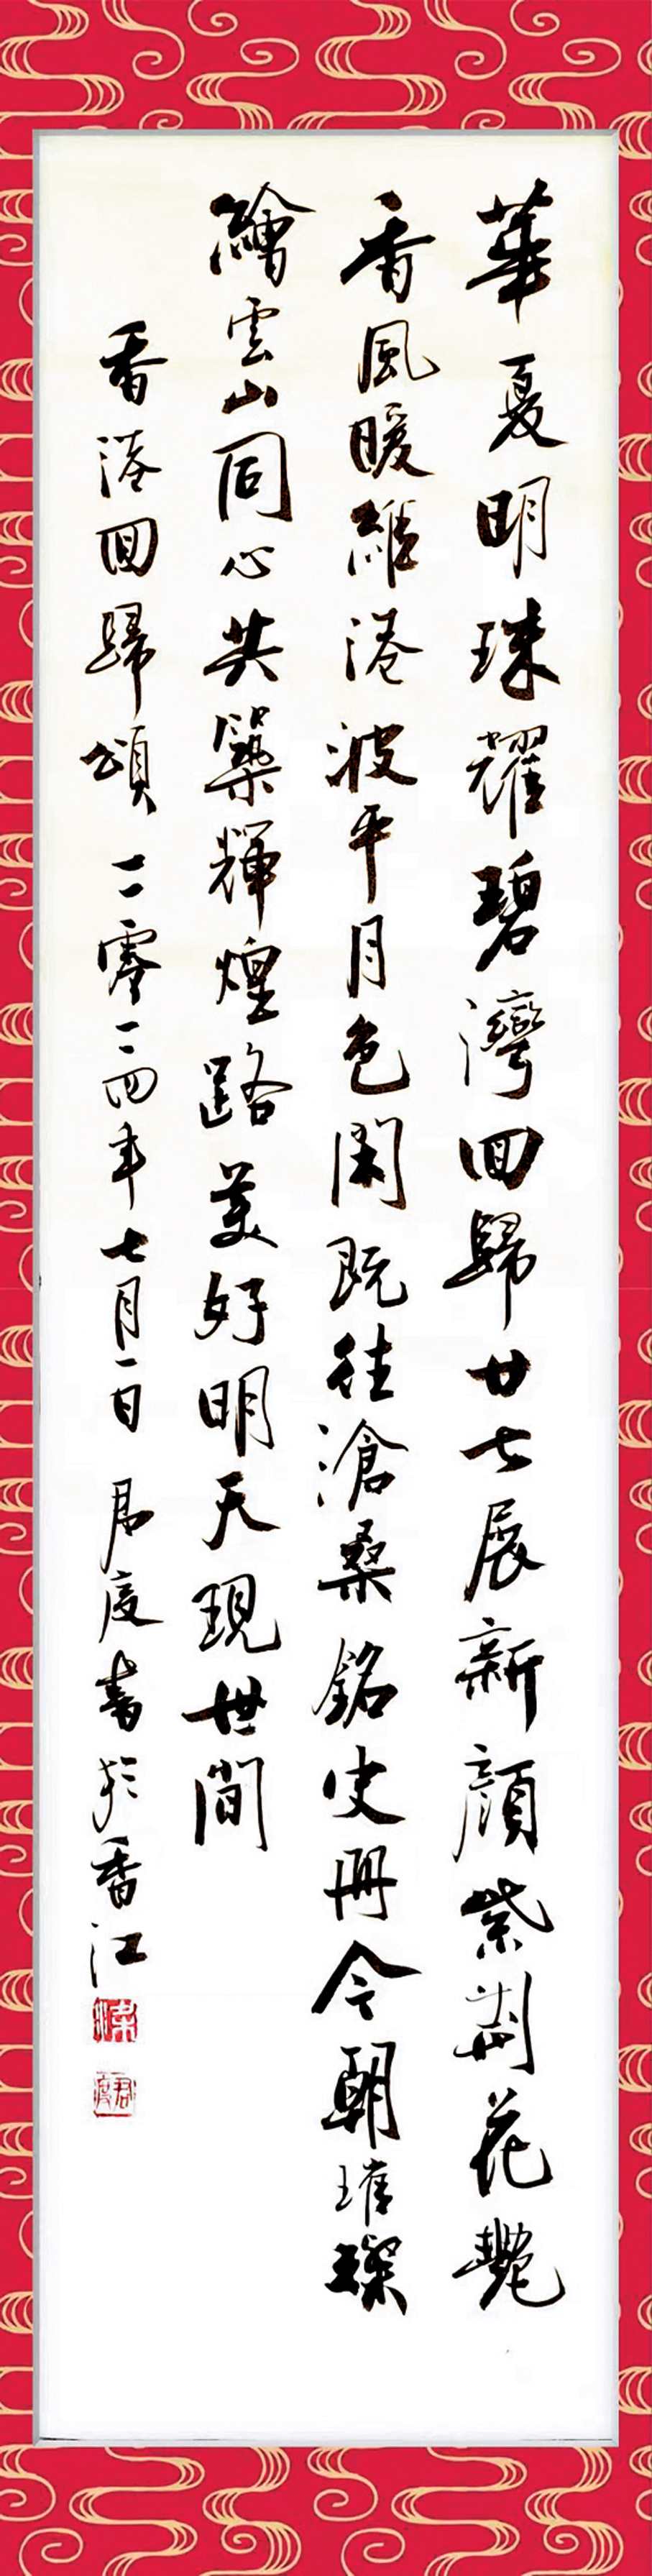 華夏明珠耀碧灣回歸廿七展新顏紫荆花艷
香風暖維港波平月色閑既往滄桑銘史冊今朝璀璨
繪雲山同心共築輝煌路美好明天現世間
香港回歸頌二零二四年七月一日君度書於香江
君度